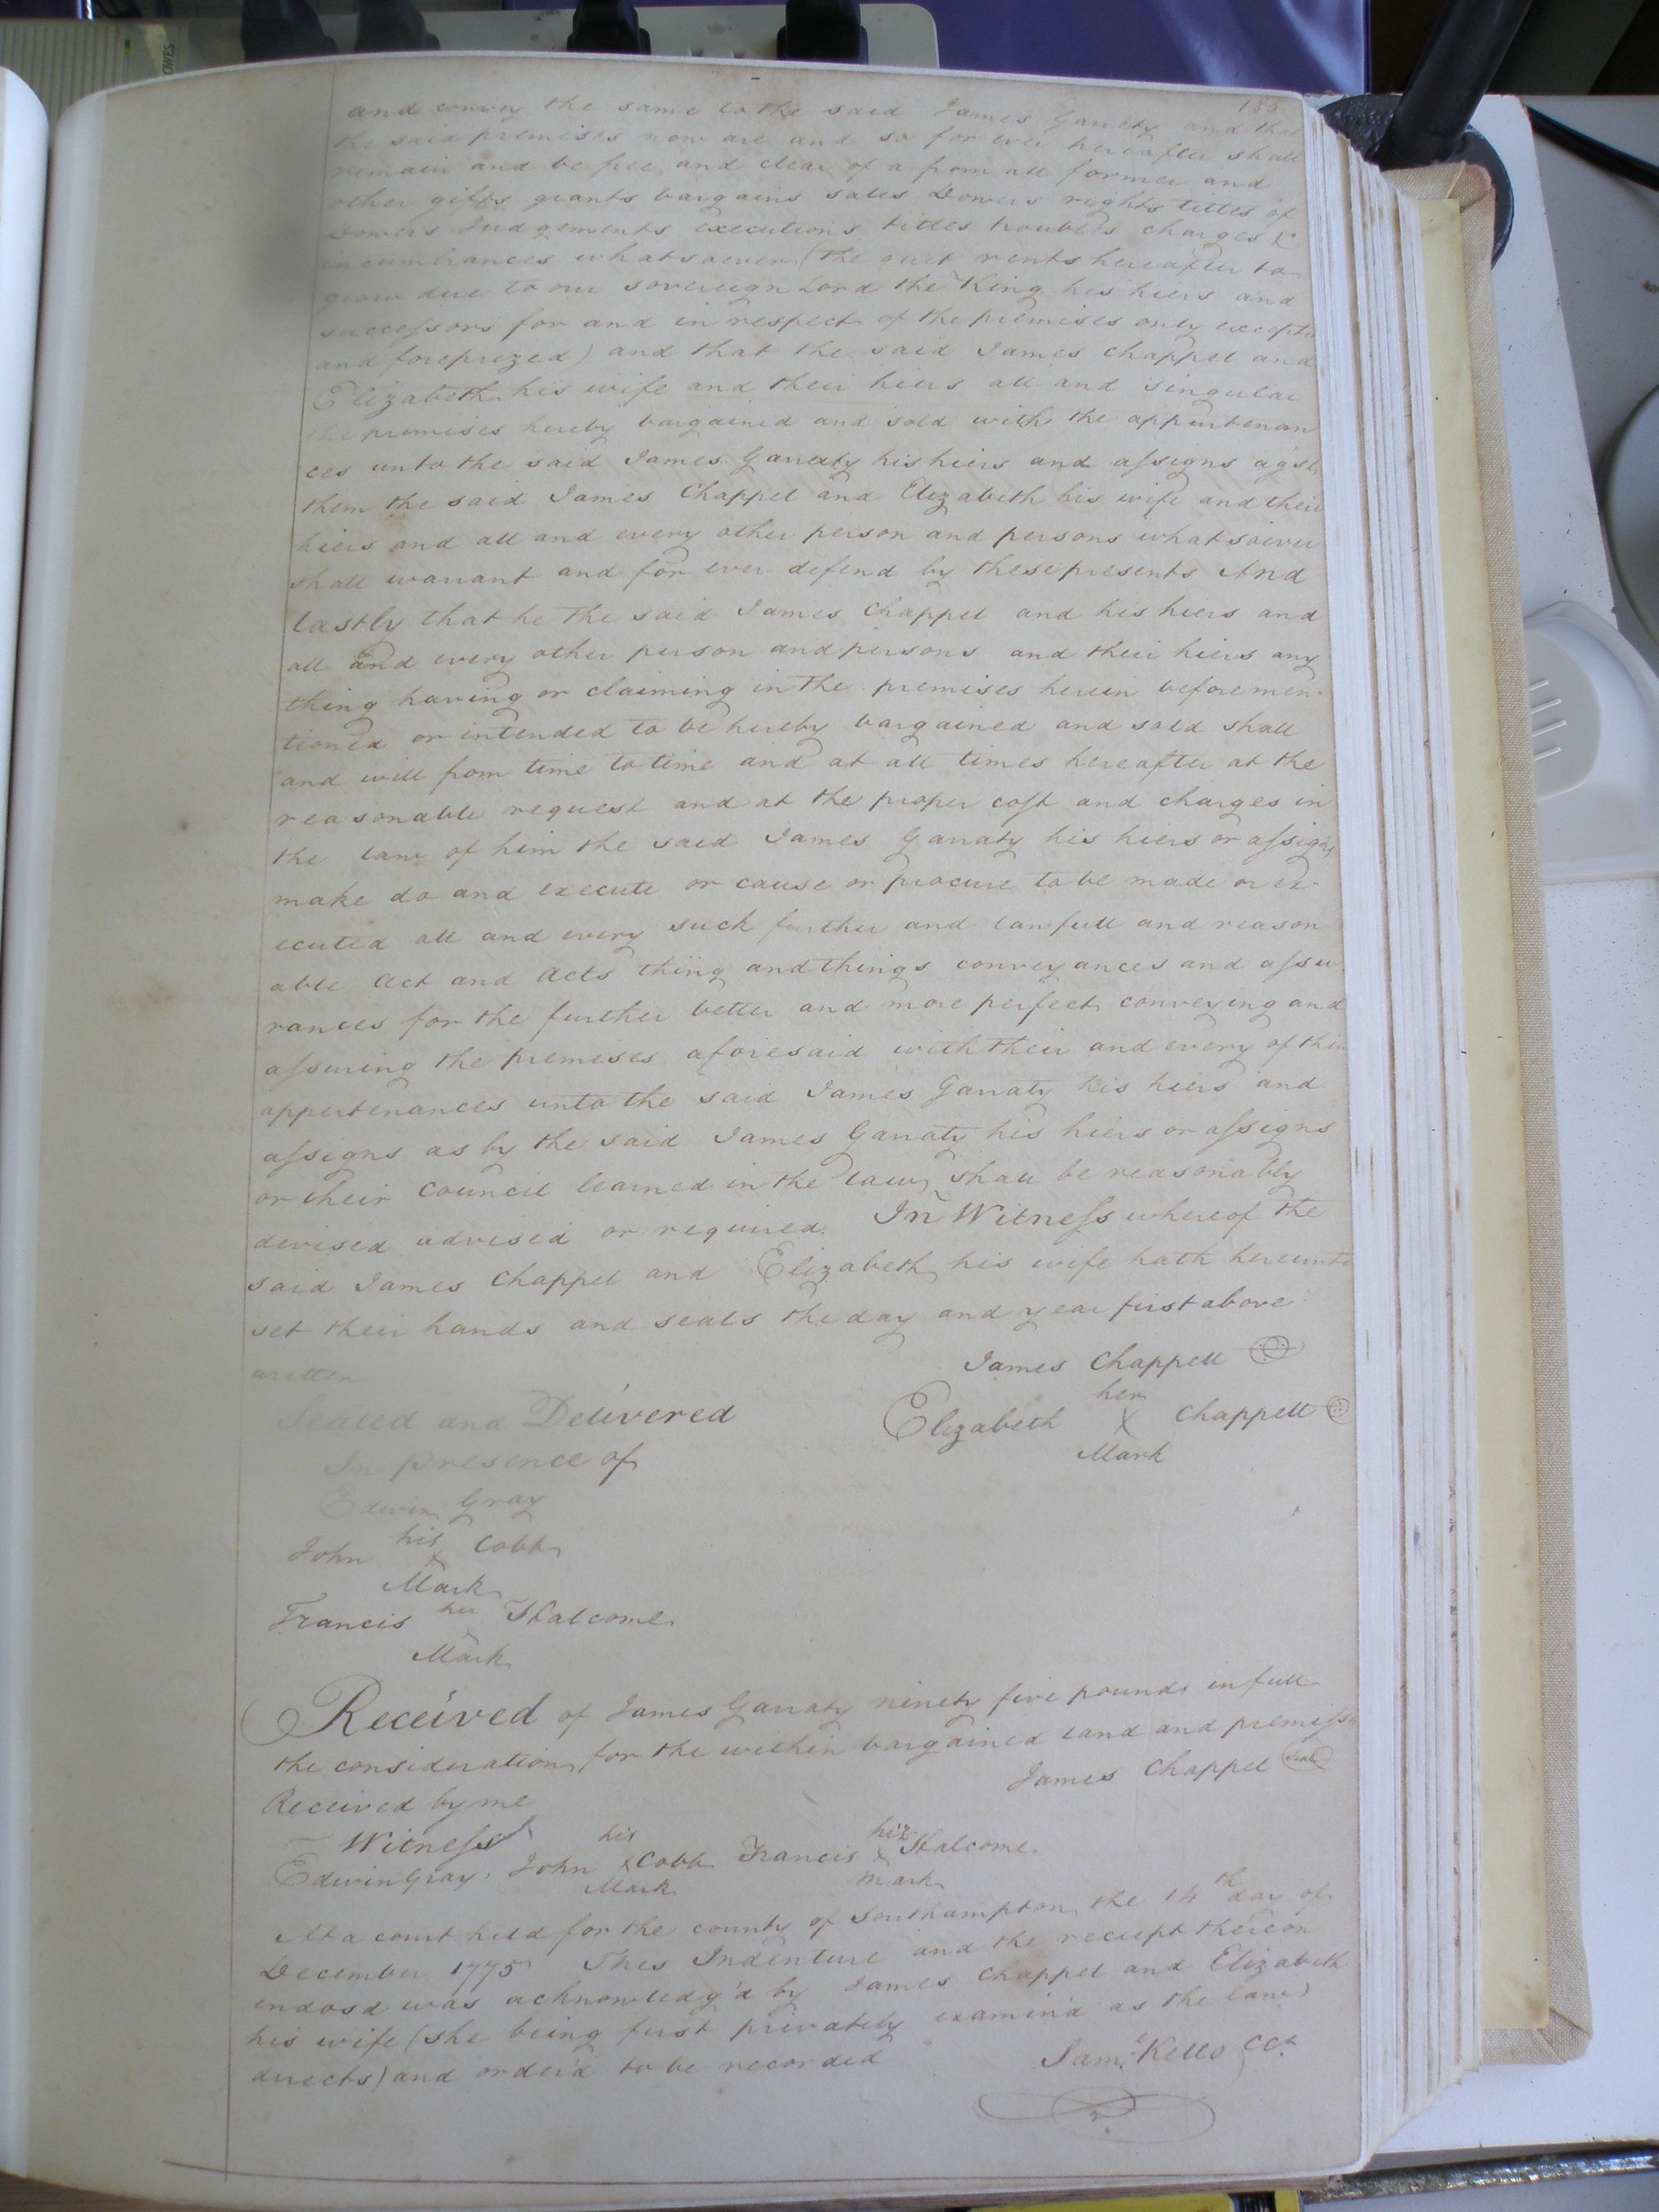 and convey the same to the said James Garrety and that
the said premises now are and so for ever hereafter shall
remain and be free and clear of a from all former and
other gifts grants bargains sales Dowers rights titles of
Dowers Judgements executions titles troubles charges &
incumbrances whatsoever (the quit rents hereafter to
grow due to our sovereign Lord the King his hiers and
successors for and in respect of the premises only excepted
and foreprized) and that the said James Chappel and
Elizabeth his wife and their hiers all and singular
the premises hereby bargained and sold with the appurtenan
ces unto the said James Garraty his hiers and assigns agst
them the said James Chappel and Elizabeth his wife and their
hiers and all and every other person and persons whatsoever
shall warrant and for ever defend by these presents And
lastly that he the said James Chappel and his hiers and
all and every other person and persons and their hiers any
thing having or claiming in the premises herein before men-
tioned or intended to be hereby bargained and sold shall
and will from time to time and at all times hereafter at the
reasonable request and at the proper cost and charges in
the law of him the said James Garraty his hiers or assigns
make do and execute or cause or procure to be made or ex-
ecuted all and every such further and lawfull and reason-
able Act and Acts thing and things conveyances and assu
rances for the further better and more perfect conveying and
assuring the premises aforesaid with their and every of their
appertenances unto the said James Garraty his hiers and
assigns as by the said James Garraty his hiers or assigns
or their Council learned in the law shall be reasonably
devised advised or required. In Witness whereof the
said James Chappel and Elizabeth his wife hath hereunto
set their hands and seals the day and year first above
written
James Chappell
Sealed and Delivered
her
Elizabeth X Chappell
Mark
In presence of
Edwin Gray
his
John x Cobb
Mark
her
Francis x Stalcome
Mark
Received of James Garraty ninety five pounds in full
the consideration for the within bargained land and premises
Received by me
James Chappel Seal
Witness
his his
Edwin Gray, John x Cobb Francis x Stalcome
Mark mark
At a court held for the county of Southampton the 14th day of
December 1775 This Indenture and the reciept thereon
endosd was acknowledg'd by James Chappel and Elizabeth
his wife (she being first privately examin'd as the law
directs) and order'd to be recorded
Saml. Kello CCt.